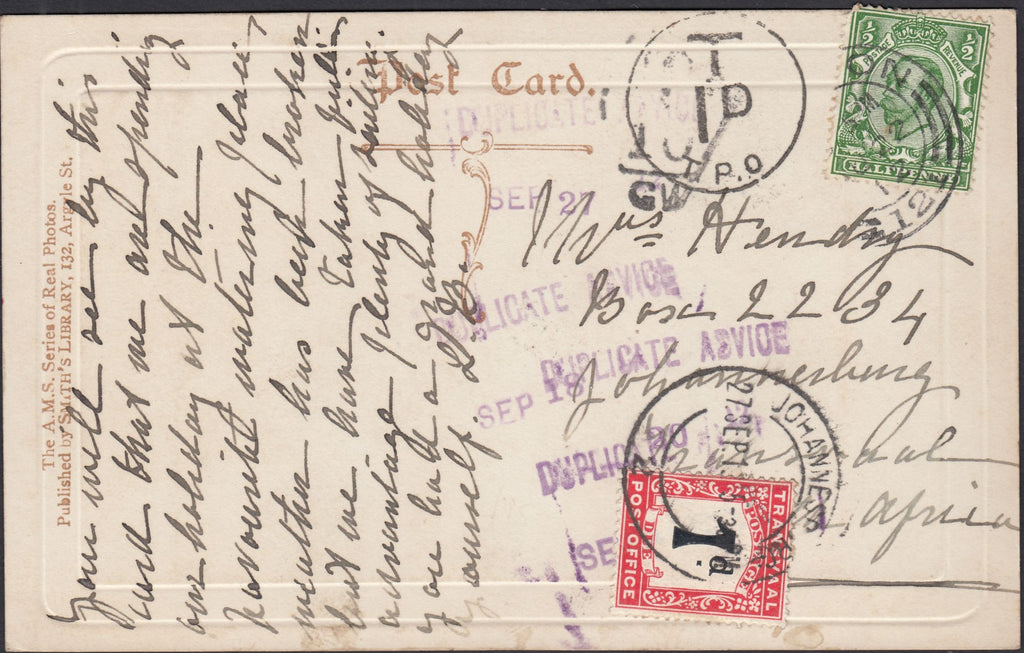 Post Card.
The A.M.S. Series of Real Photos.
Published by SMITH'S LIBRARY, 132, Argyle St.
You will see by this
card that we are spending
our holiday at the
favourite watering places
weather has been broken
but we have taken
advantage plenty of smiling.
you had a grand holiday
yourself.
Mrs Hendry
Box 2234
Johannesburg
Transvaal
S. Africa
½ ½
POSTAGE REVENUE
HALFPENNY
T
1D
T.P.O
GW
DUPLICATE ADVICE
SEP 27
DUPLICATE ADVICE
DUPLICATE ADVICE
SEP 18
DUPLICATE
SE
JOHANNESBURG
27 SEPT
TRANSVAAL
POSTAGE
DUE
1d.
POST OFFICE